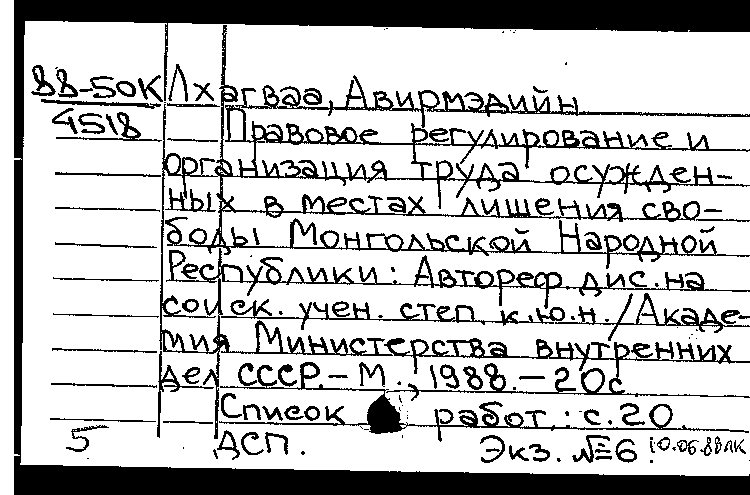 88-50К Лхагваа, Авирмэдийн
4518 Правовое регулирование и
организация труда осужден-
ных в местах лишения сво-
боды Монгольской Народной
Республики: Автореф. дис. на
соиск. учен. степ. к.ю.н. / Акаде-
мия Министерства внутренних
дел СССР. - М., 1988. - 20с.
Список работ.: с.20.
5 ДСП. Экз. №6. 10.06.88ЛК